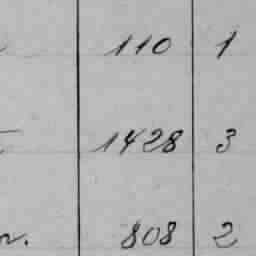 110 1
1428 3
n. 808 2